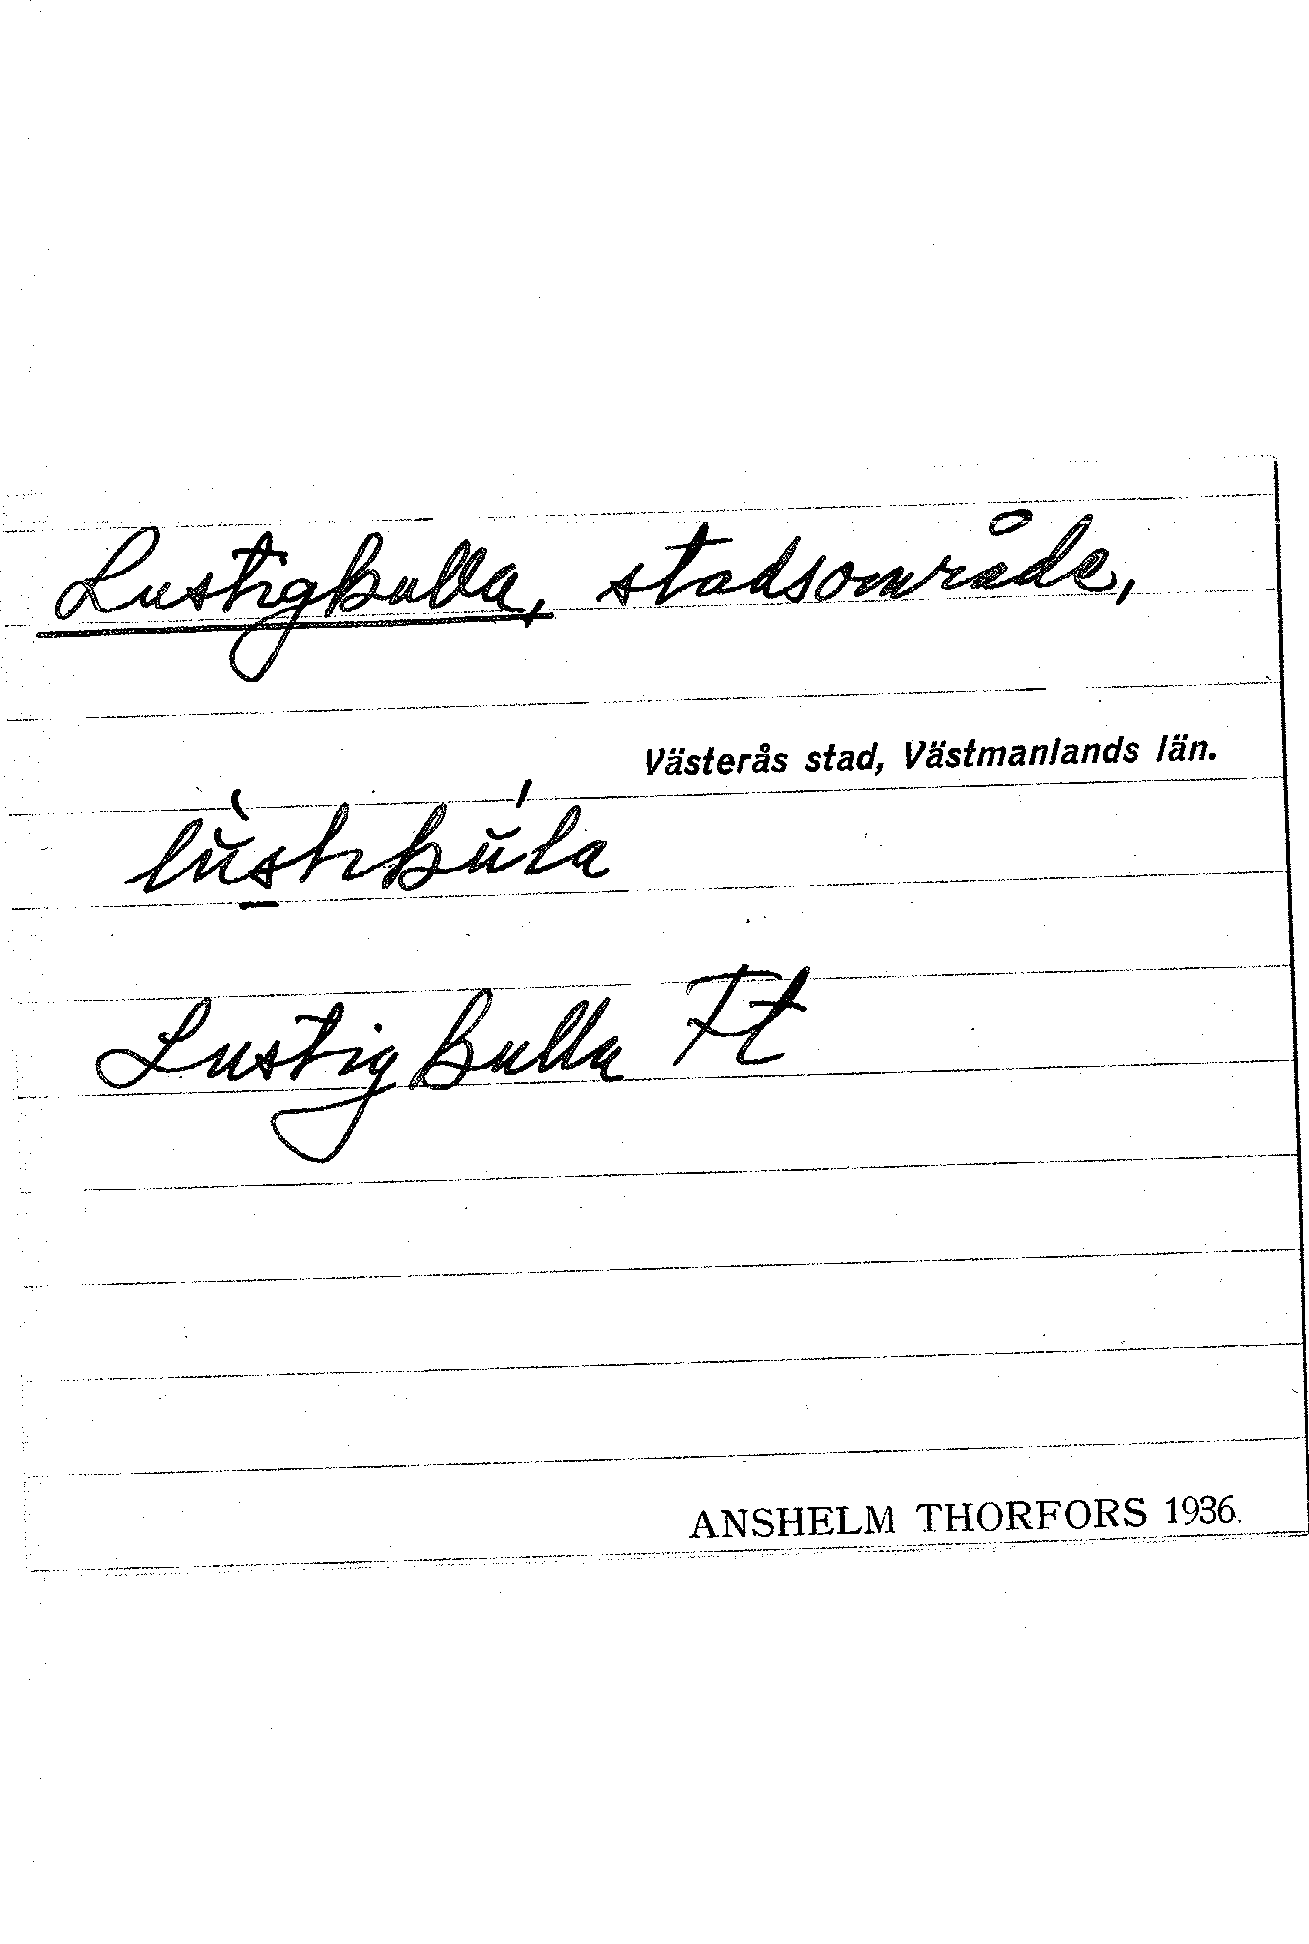 Lustigkulla, stadsområde,
Västerås stad, Västmanlands län.
Lustigkulla Ft
ANSHELM THORFORS 1936.